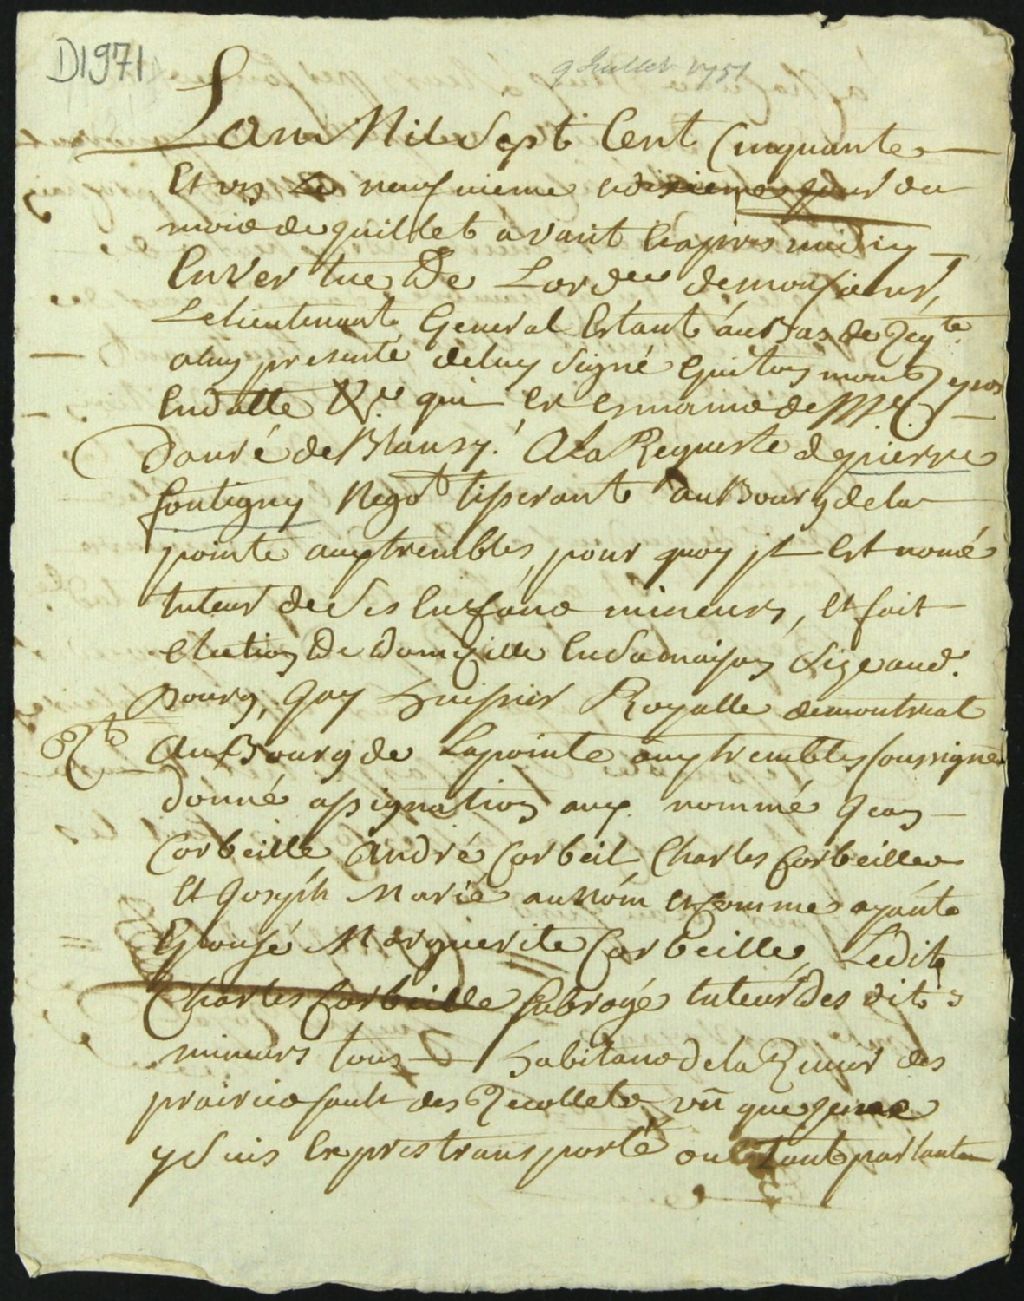 D1971
9 Juillet 1751
Lan Mil Sept Cent Cinquante
Et un le neufvieme jour du
mois de Juillet avant Capres midy
En Vertue De Lordce de monsieur,
Le lieutenant General Estant au Bas de Reqte
a luy presenté de luy Signé
En datte qui Et Esmanné de Mr
Danré de Blanzy. A La Requeste de pierre
fontigny Negot au Bourg de la
pointe aux trembles, pour quoy jl Est nomé
tuteur de Ses Enfans mineurs, Et fait
Election De domicille En Sa maison Size aud.
Bourg, Jay huissier Royalle de montreal
Au Bourg de Lapointe aux trembles soussigné
donné assignation aux nommé Jean
Corbeille André Corbeil Charles Corbeille
Et Joseph Marié au Nom et Comme ayante
Epousé Marguerite Corbeille, Ledit
Charles Corbeille subrogé tuteur Des dits
mineurs tous habitans de la Riviere des
prairies sault des Recollets ou que je me
y Suis Expres transporté ou Etant parlant